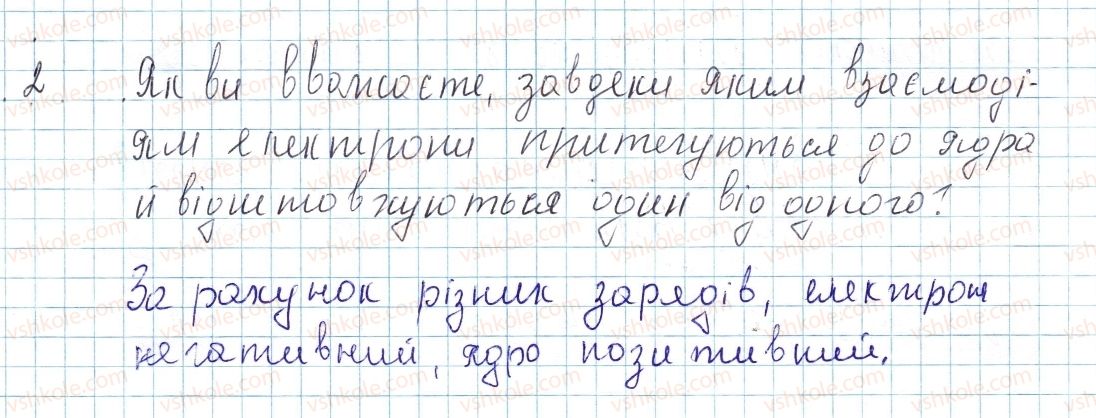 2. Як ви вважаєте, завдяки яким взаємоді-
ям електрони притягуються до ядра
й відштовхуються один від одного?
За рахунок різник зарядів, електрон
негативний, ядро позитивний.